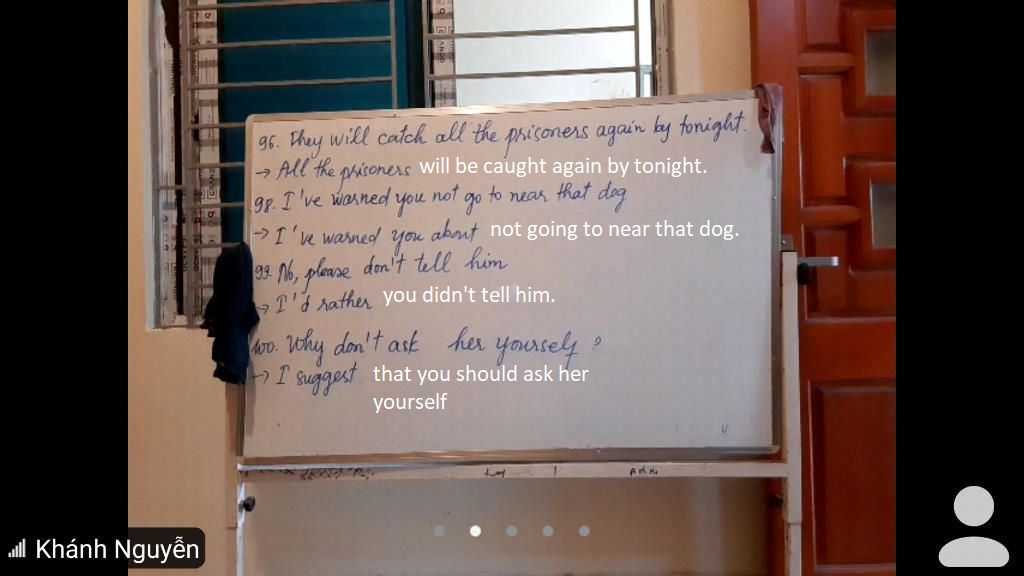 96. They will catch all the prisoners again by tonight.
→ All the prisoners will be caught again by tonight.
98. I've warned you not go to near that dog
→ I've warned you about not going to near that dog.
99. No, please don't tell him
→ I'd rather you didn't tell him.
100. Why don't ask her yourself?
→ I suggest that you should ask her
yourself
Khánh Nguyễn